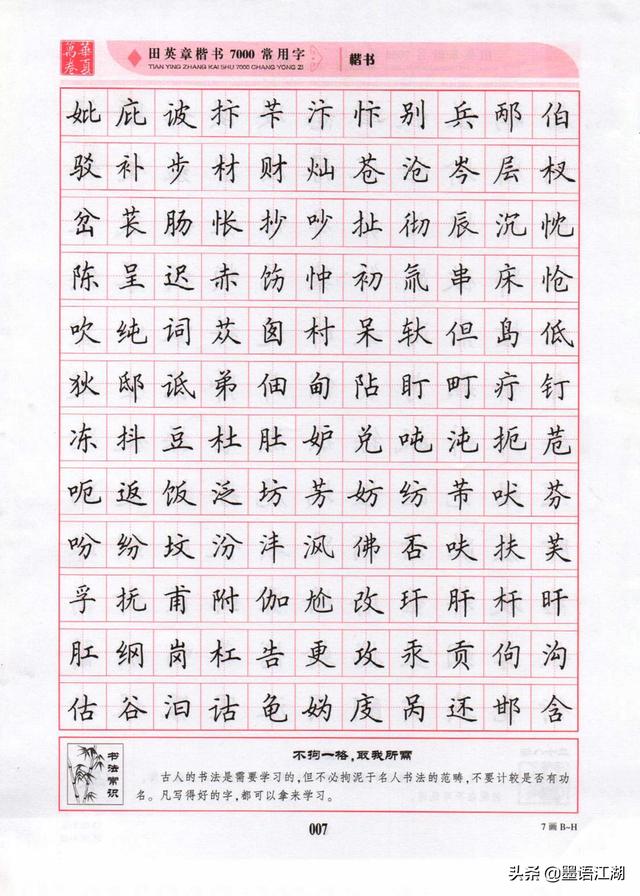 華夏萬卷
田英章楷书7000常用字
TIAN YING ZHANG KAI SHU 7000 CHANG YONG ZI
楷书
妣庇诐抃苄汴忭别兵邴伯
驳补步材财灿苍沧岑层杈
岔苌肠怅抄吵扯彻辰沉忱
陈呈迟赤饬忡初氚串床怆
吹纯词苁囱村呆轪但岛低
狄邸诋弟佃甸阽盯町疔钉
冻抖豆杜肚妒兑吨沌扼苊
呃返饭泛坊芳妨纺芾吠芬
吩纷坟汾沣沨佛否呋扶芙
孚抚甫附伽尬改玕肝杆旰
肛纲岗杠告更攻汞贡佝沟
估谷汩诂龟妫庋呙还邯含
书法常识
不拘一格,取我所需
古人的书法是需要学习的,但不必拘泥于名人书法的范畴,不要计较是否有功
名。凡写得好的字,都可以拿来学习。
007
7画B-H
头条@墨语江湖